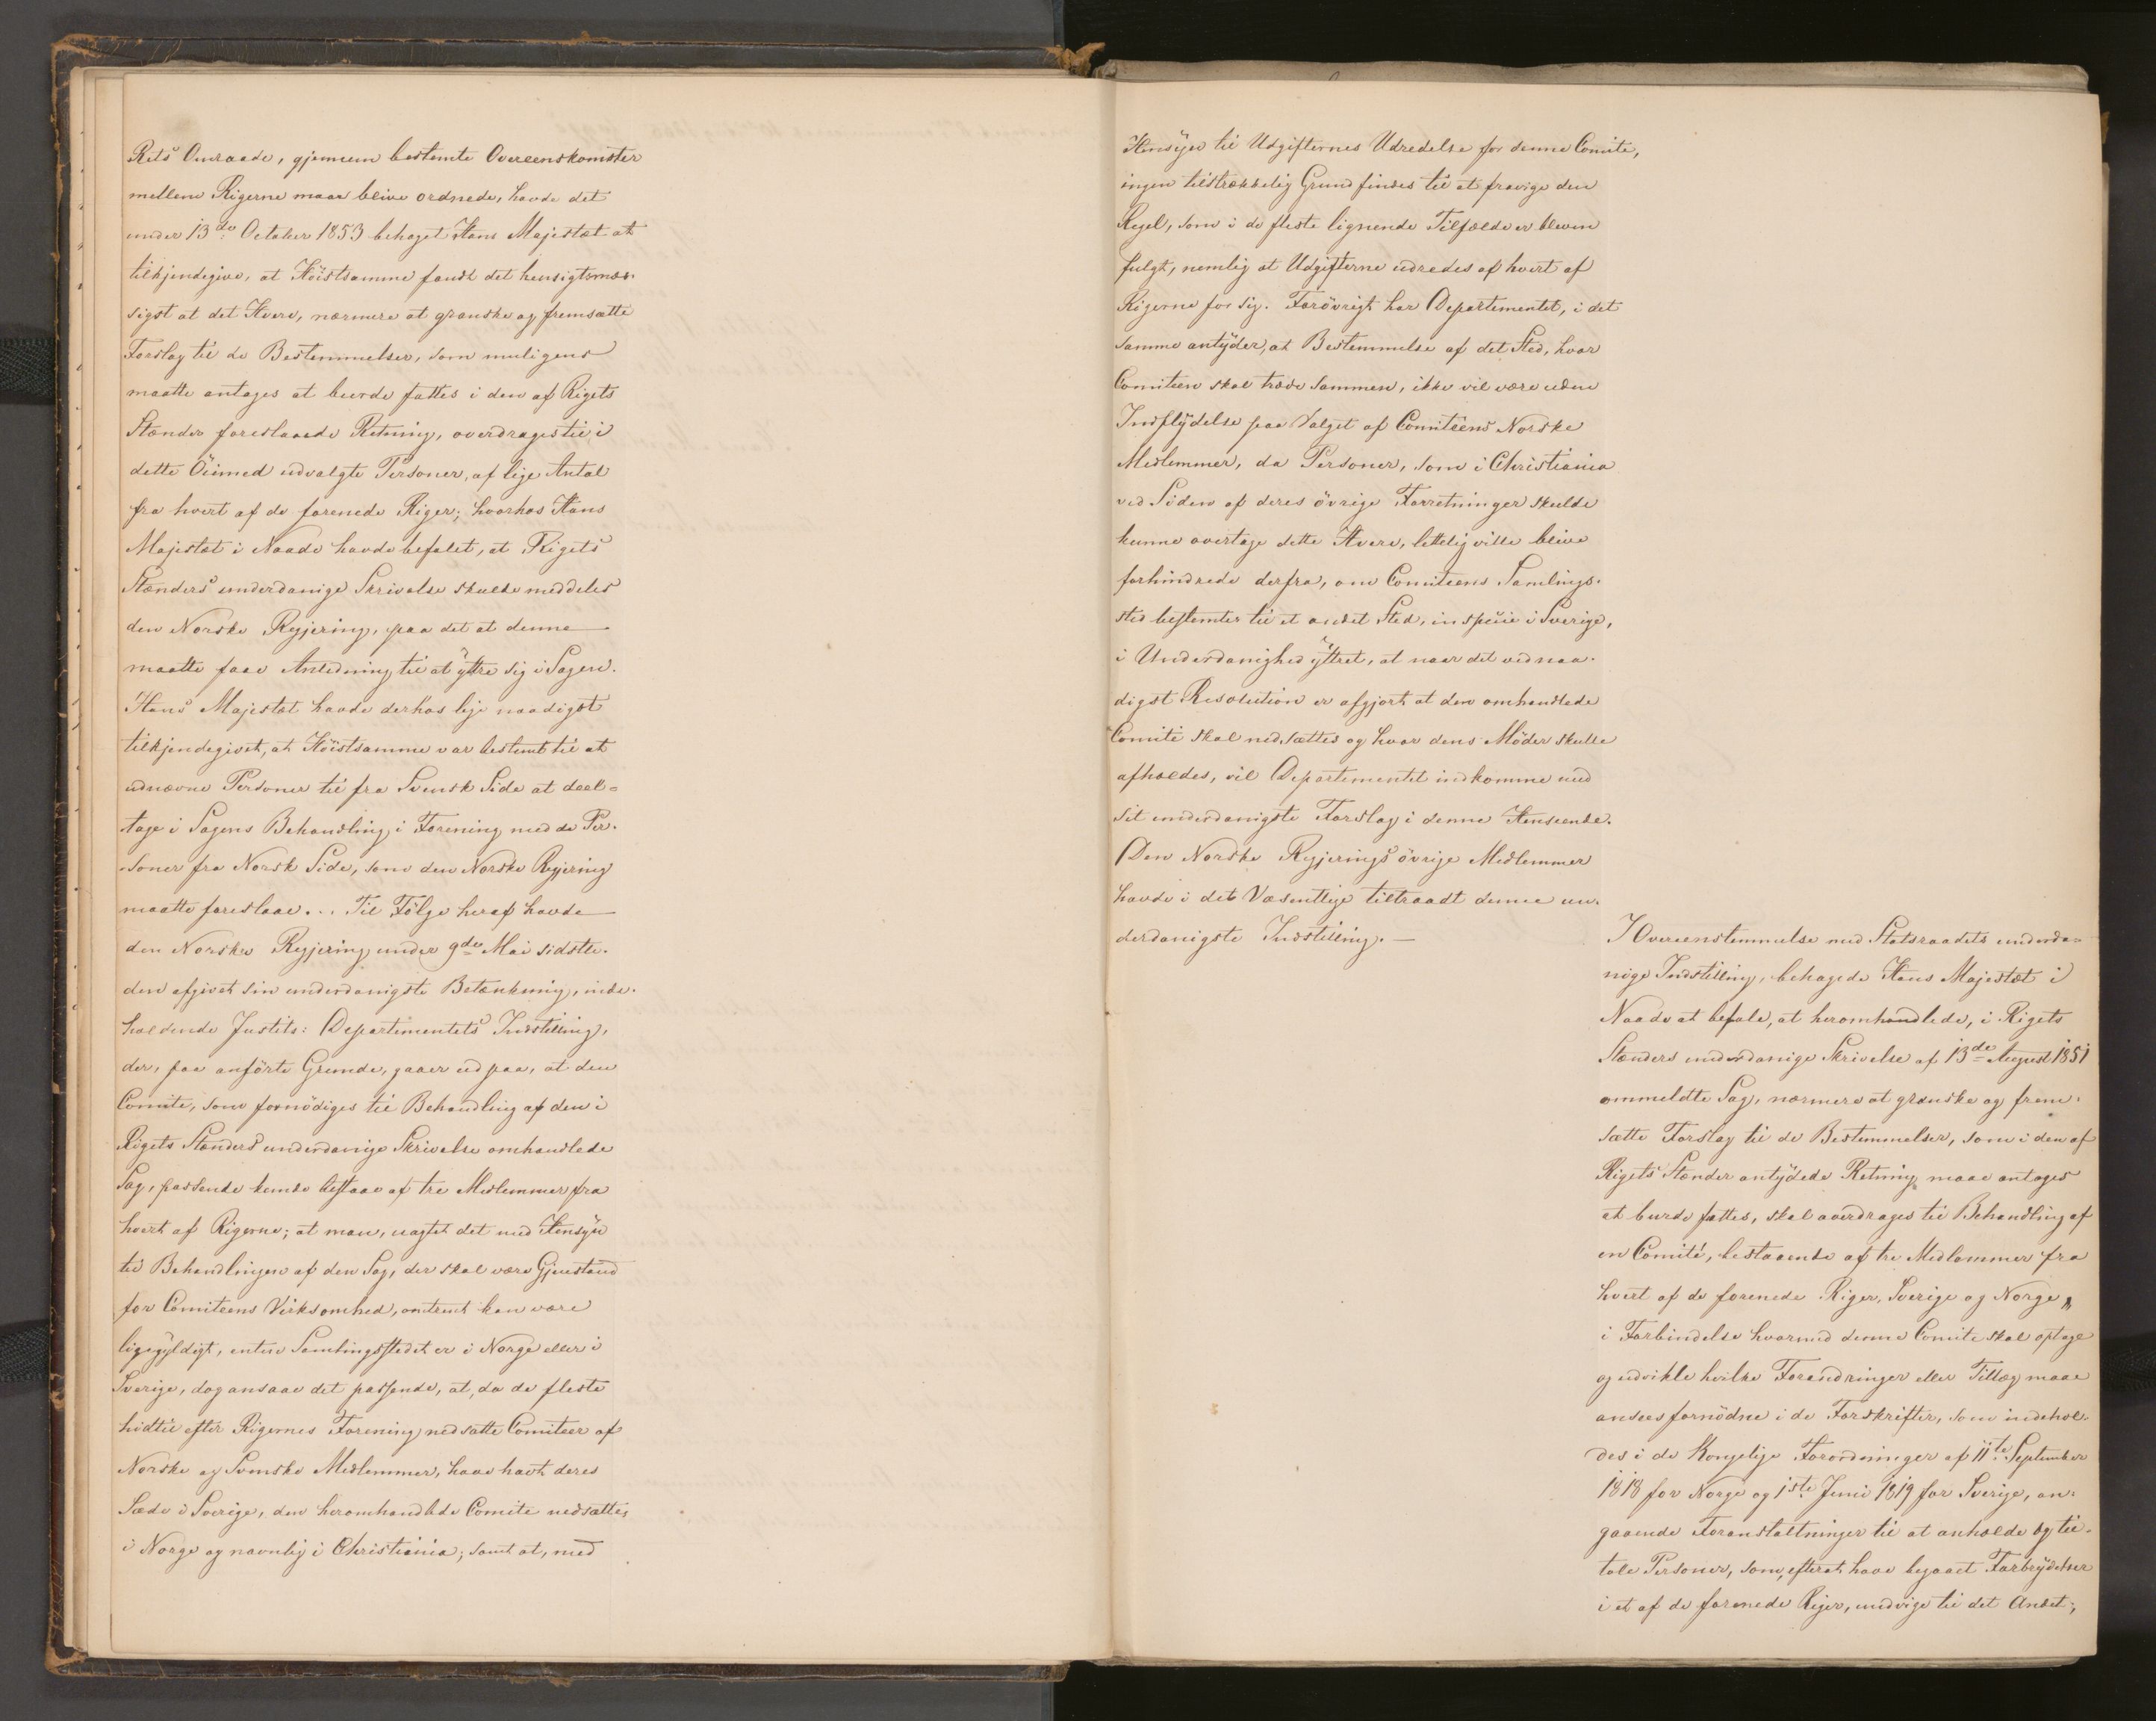 Rets Omraade, gjennem bestemte Overeenskomster
mellem Rigerne maae blive ordnede, havde det
under 13de October 1853 behaget Hans Majestæt at
tilkjendegive, at Höistsamme fandt det hensigtsmæs-
sigst at det Hverv, nærmere at granske og fremsætte
Forslag til de Bestemmelser, som muligens
maatte antages at burde fattes i den af Rigets
Stænder foreslaaede Retning, overdrages til i
dette Öiemed udvalgte Personer, af lige Antal
fra hvert af de forenede Riger; hvorhos Hans
Majestæt i Naade havde befalet, at Rigets
Stænders underdanige Skrivelse skulde meddeles
den Norske Regjering, paa det at denne
maatte faae Anledning til at yttre sig i Sagen.
Hans Majestæt havde derhos lige naadigst
tilkjendegivet, at Höistsamme var bestemt til at
udnævne Personer til fra Svensk Side at deel-
tage i Sagens Behandling i Forening med de Per-
soner fra Norsk Side, som den Norske Regjering
maatte foreslaae... Til Fölge heraf havde
den Norske Regjering under 9de Mai sidstle-
den afgivet sin underdanigste Betænkning, inde-
holdende Justits: Departementets Indstilling,
der, paa anförte Grunde, gaaer ud paa, at den
Comite, som fornödiges til Behandling af den i
Rigets Stænders underdanige Skrivelse omhandlede
Sag, passende kunde bestaae af tre Medlemmer fra
hvert af Rigerne; at man, uagtet det med Hensyn
til Behandlingen af den Sag, der skal være Gjenstand
for Comiteens Virksomhed, omtrent kan være
ligegyldigt, enten Samlingsstedet er i Norge eller i
Sverige, dog ansaae det passende, at, da de fleste
hidtil efter Rigernes Forening nedsatte Comiteer af
Norske og Svenske Medlemmer, have havt deres
Sæde i Sverige, den heromhandlede Comite nedsættes
i Norge og navnlig i Christiania; samt at, med
Hensyn til Udgifternes Udredelse for denne Comite,
ingen tilstrækkelig Grund findes til at fravige den
Regel, som i de fleste lignende Tilfælde er bleven
fulgt, nemlig at Udgifterne udredes af hvert af
Rigerne for sig. Forövrigt har Departementet, i det
samme antyder, at Bestemmelse af det Sted, hvor
Comiteen skal træde sammen, ikke vil være uden
Indflydelse paa Valget af Comiteens Norske
Medlemmer, da Personer, som i Christiania
ved Siden af deres övrige Forretninger skulde
kunne overtage dette Hverv, lettelig ville blive
forhindrede derfra, om Comiteens Samlings-
sted bestemtes til et andet Sted, in specie i Sverige,
i Underdanighed yttret, at naar det ved naa-
digst Resolution er afgjort at den omhandlede
Comite skal nedsættes og hvor dens Möder skulle
afholdes, vil Departementet indkomme med
sit underdanigste Forslag i denne Henseende.
Den Norske Regjerings övrige Medlemmer
havde i det Væsentlige tiltraadt denne un-
derdanigste Indstilling. —
I Overeenstemmelse med Statsraadets underda-
nige Indstilling, behagede Hans Majestæt i
Naade at befale, at heromhandlede, i Rigets
Stænders underdanige Skrivelse af 13de August 1851
ommeldte Sag, nærmere at granske og frem-
sætte Forslag til de Bestemmelser, som i den af
Rigets Stænder antydede Retning maae antages
at burde fattes, skal overdrages til Behandling af
en Comité, bestaaende af tre Medlemmer fra
hvert af de forenede Riger, Sverige og Norge,
i Forbindelse hvormed denne Comite skal optage
og udvikle hvilke Forandringer eller Tillæg maae
ansees fornödne i de Forskrifter, som indehol-
des i de Kongelige Forordninger af 11te September
1818 for Norge og 1ste Juni 1819 for Sverige, an-
gaaende Foranstaltninger til at anholde og til-
tale Personer, som, efterat have begaaet Forbrydelser
i et af de forenede Riger, undvige til det Andet;